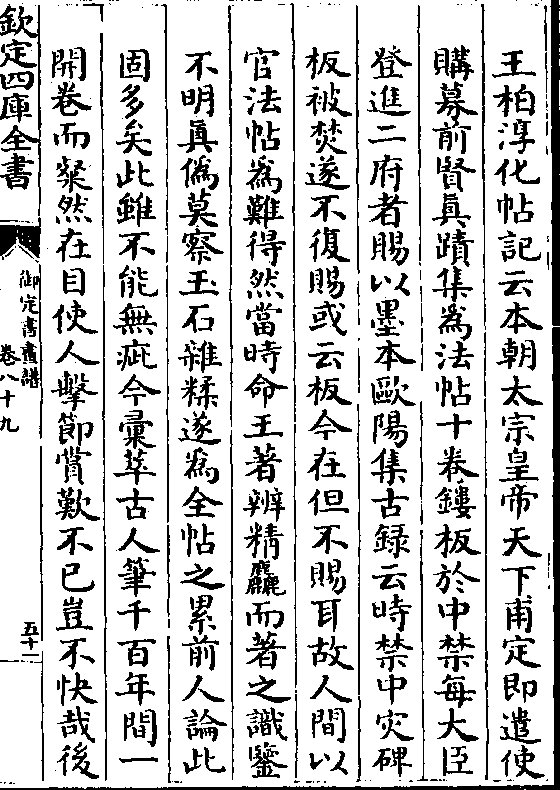 王柏淳化帖記云本朝太宗皇帝天下甫定即遣使
購募前賢真蹟集為法帖十卷鏤板於中禁每大臣
登進二府者賜以墨本歐陽集古録云時禁中灾碑
板被焚遂不復賜或云板今在但不賜耳故人間以
官法帖為難得然當時命王著辨精麤而著之識鑒
不明真偽莫察玉石雜糅遂為全帖之累前人論此
固多矣此雖不能無疵今彙萃古人筆千百年間一
開卷而粲然在目使人擊節賞歎不已豈不快哉後
欽定四庫全書
御定書畫譜
卷八十九
五十